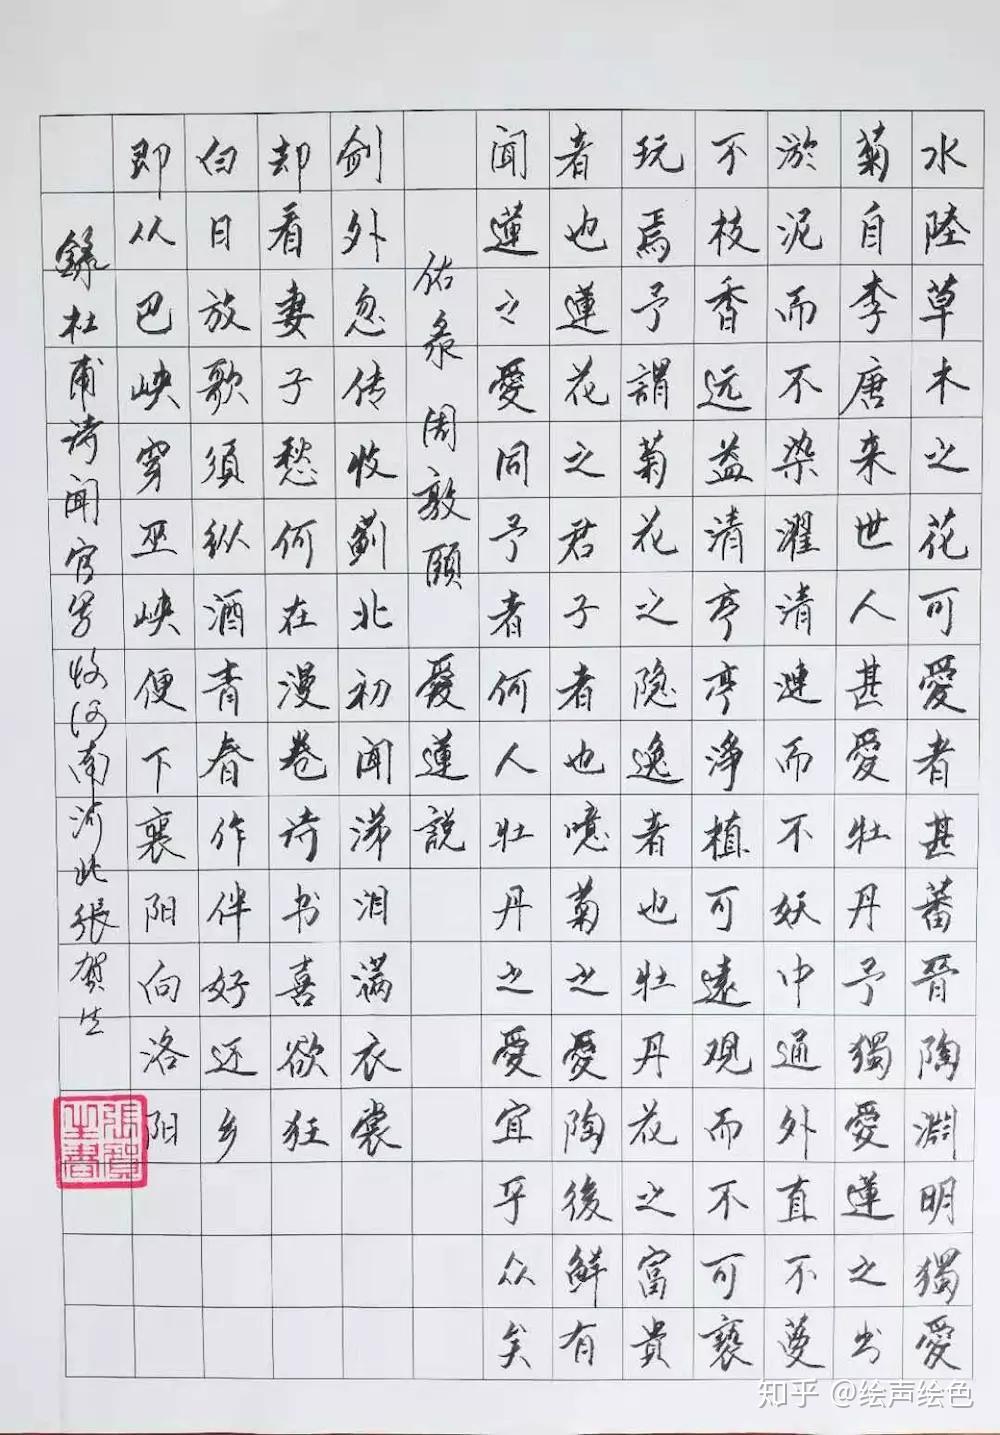 水陸草木之花可愛者甚蕃晉陶淵明獨愛
菊自李唐来世人甚愛牡丹予獨愛蓮之出
淤泥而不染濯清涟而不妖中通外直不蔓
不枝香远益清亭亭淨植可遠观而不可褻
玩焉予謂菊花之隐逸者也牡丹花之富貴
者也蓮花之君子者也噫菊之愛陶後鮮有
闻蓮之愛同予者何人牡丹之愛宜乎众矣
佑录 周敦颐 愛蓮説
剑外忽传收蓟北初闻涕泪满衣裳
却看妻子愁何在漫卷诗书喜欲狂
白日放歌須纵酒青春作伴好还乡
即从巴峡穿巫峡便下襄阳向洛阳
録杜甫诗闻官军收河南河北張贺生
知乎 @绘声绘色